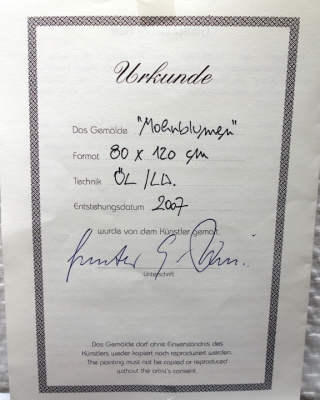 Urkunde
Das Gemälde "Mohnblumen"
Format 80 x 120 cm
Technik ÖL/LD.
Entstehungsdatum 2007
wurde von dem Künstler gemalt.
Unterschrift
Das Gemälde darf ohne Einverständnis des
Künstlers weder kopiert noch reproduziert werden.
The painting must not be copied or reproduced
without the artist's consent.